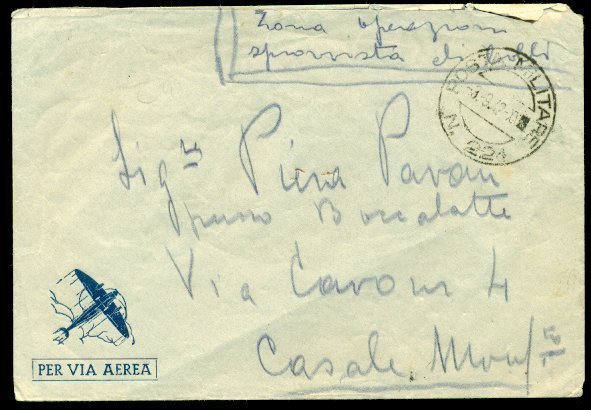 Zona operazioni
sprovvista di bolli
POSTA MILITARE
N. 224
Sig.ra Piera Pavan
presso Boccalatte
Via Cavour 4
Casale Monf.to
PER VIA AEREA